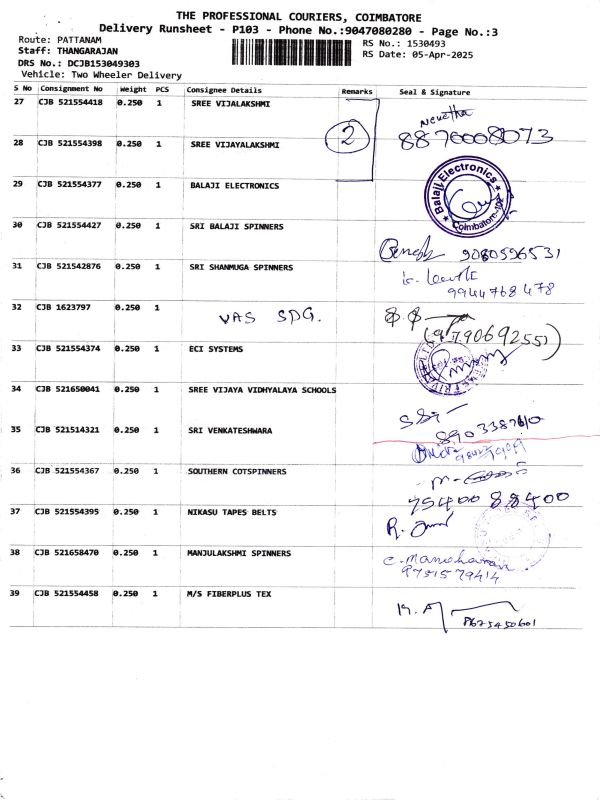 THE PROFESSIONAL COURIERS, COIMBATORE
Delivery Runsheet - P103 - Phone No.:9047080280 - Page No.:3
Route: PATTANAM
RS No.: 1530493
Staff: THANGARAJAN
RS Date: 05-Apr-2025
DRS No.: DCJB153049303
Vehicle: Two Wheeler Delivery
S No Consignment No Weight PCS Consignee Details Remarks Seal & Signature
27 CJB 521554418 0.250 1 SREE VIJALAKSHMI
2
8870008073
28 CJB 521554398 0.250 1 SREE VIJAYALAKSHMI
29 CJB 521554377 0.250 1 BALAJI ELECTRONICS
Balaji Electronics
Coimbatore-
30 CJB 521554427 0.250 1 SRI BALAJI SPINNERS
9080596531
31 CJB 521542876 0.250 1 SRI SHANMUGA SPINNERS
9944768478
32 CJB 1623797 0.250 1 VAS SPG.
(9790692551)
33 CJB 521554374 0.250 1 ECI SYSTEMS
34 CJB 521650041 0.250 1 SREE VIJAYA VIDHYALAYA SCHOOLS
35 CJB 521514321 0.250 1 SRI VENKATESHWARA
36 CJB 521554367 0.250 1 SOUTHERN COTSPINNERS
75400 88400
37 CJB 521554395 0.250 1 NIKASU TAPES BELTS
38 CJB 521658470 0.250 1 MANJULAKSHMI SPINNERS
C. Manoharan
9751579414
39 CJB 521554458 0.250 1 M/S FIBERPLUS TEX